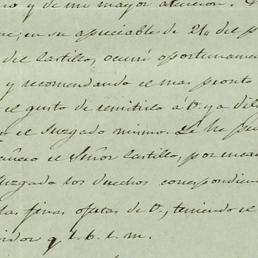 y de mi mayor atencion.
en su apreciable de 24 del p
del Castillo, ocurrí oportuname
y recomendando el mas pronto
el gusto de remitirla a V. ya dili
el Juzgado mismo. Le he
el Señor Castillo, por
Juzgado los derechos correspondien
las finas ofertas de V., teniendo el
idor q. b. s. m.